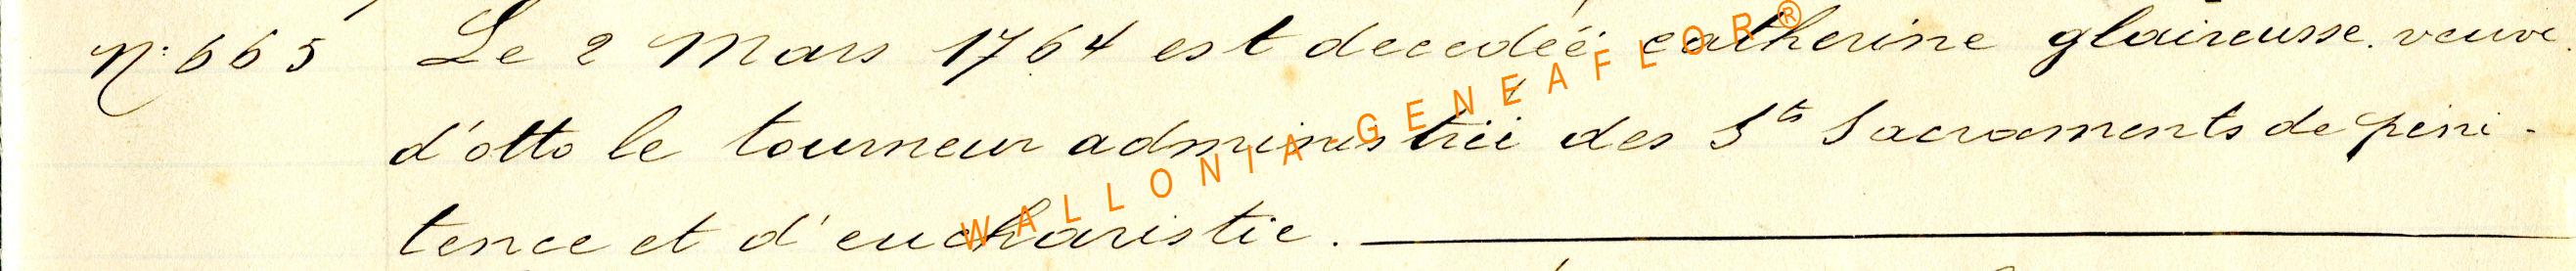 N° 665 Le 2 Mars 1764 est decedéé catherine glaireusse. veuve
d'otto le tourneur administréé des Sts Sacraments de peni-
tence et d'eucharistie.
WALLONIA-GENEAFLOR®